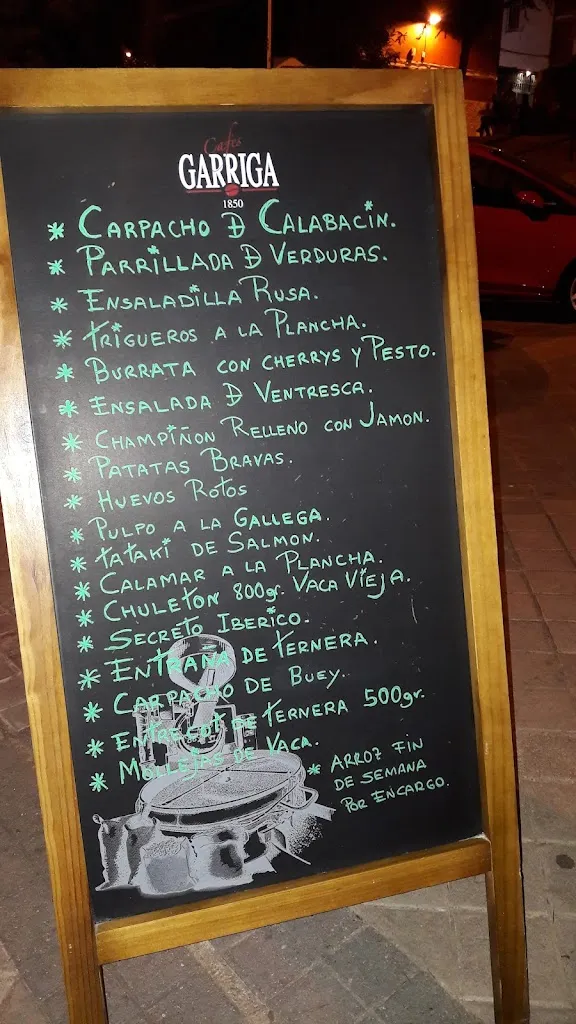 Cafés
GARRIGA
1850
* CARPACHO D CALABACIN.
* PARRILLADA D VERDURAS.
* ENSALADILLA RUSA.
* TRIGUEROS A LA PLANCHA.
* BURRATA CON CHERRYS Y PESTO.
* ENSALADA D VENTRESCA.
* CHAMPIÑON RELLENO CON JAMON.
* PATATAS BRAVAS.
* HUEVOS ROTOS
* PULPO A LA GALLEGA.
* TATAKI DE SALMON.
* CALAMAR A LA PLANCHA.
* CHULETON 800gr. VACA VIEJA.
* SECRETO IBERICO.
* ENTRAÑA DE TERNERA.
* CARPACHO DE BUEY.
* ENTRECOT DE TERNERA 500gr.
* MOLLEJAS DE VACA.
* ARROZ FIN
DE SEMANA
POR ENCARGO.